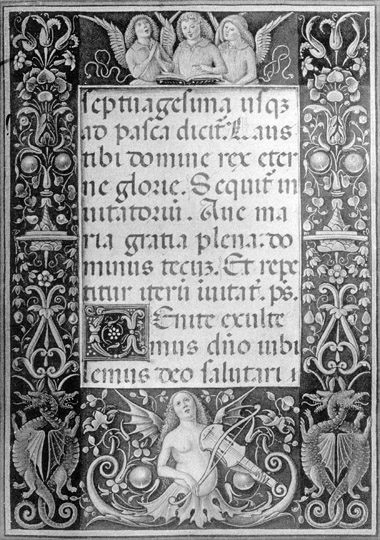 septuagesima usqꝫ
ad pasca dicit᷑. Laus
tibi domine rex eter
ne glorie. Sequit᷑ in
uitatoriū. Aue ma
ria gratia plena: do
minus tecuꝫ. Et repe
titur iterū īuitat᷑. p̄s.
Uenite exulte
mus dn̄o iubi
lemus deo salutari ı